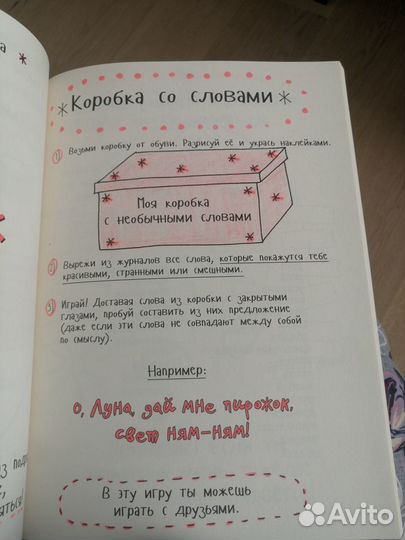 Коробка со словами
1) Возьми коробку от обуви. Разрисуй её и укрась наклейками.
Моя коробка
с необычными словами
2) Вырежи из журналов все слова, которые покажутся тебе
красивыми, странными или смешными.
3) Играй! Доставая слова из коробки с закрытыми
глазами, пробуй составить из них предложение
(даже если эти слова не совпадают между собой
по смыслу).
Например:
О, Луна, дай мне пирожок,
свет ням-ням!
В эту игру ты можешь
играть с друзьями.
Avito